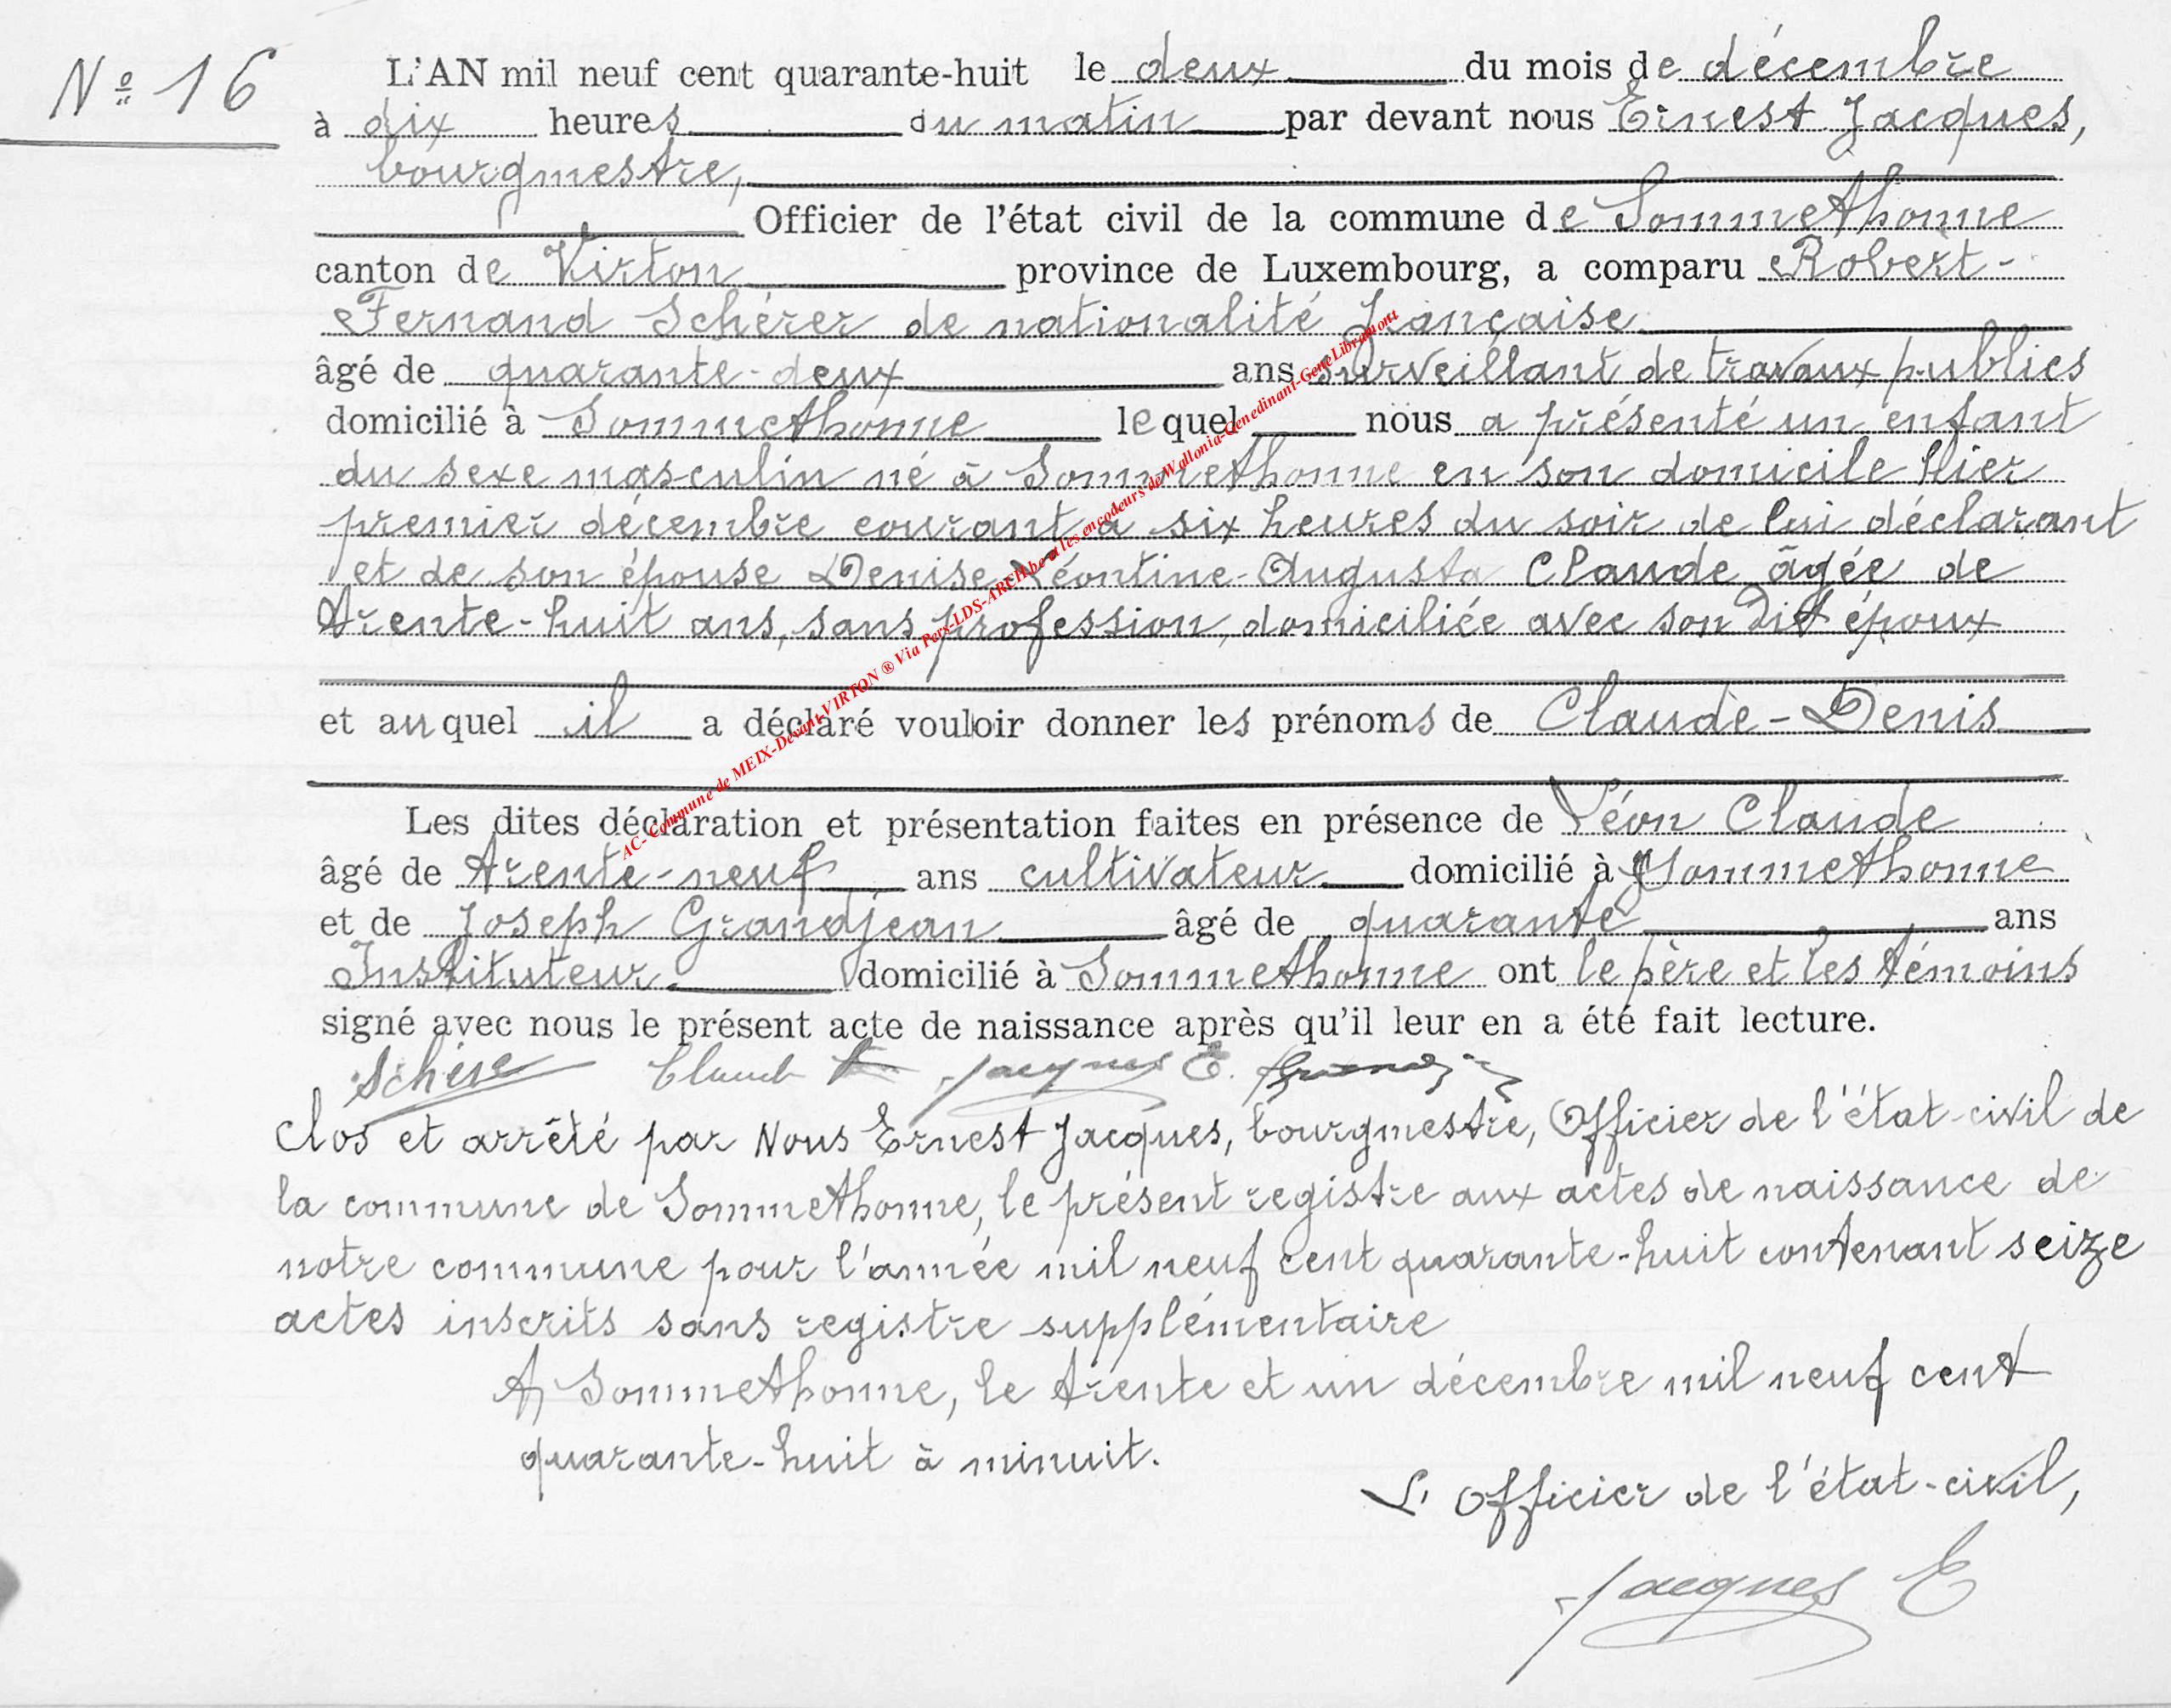 Nº 16
L'AN mil neuf cent quarante-huit le deux du mois de décembre
à dix heures du matin par devant nous Ernest Jacques,
bourgmestre,
Officier de l'état civil de la commune de Sommethonne
canton de Virton province de Luxembourg, a comparu Robert-
Fernand Schérer de nationalité française
âgé de quarante-deux ans surveillant de travaux publics
domicilié à Sommethonne lequel nous a présenté un enfant
du sexe masculin né à Sommethonne en son domicile hier
premier décembre courant à six heures du soir de lui déclarant
et de son épouse Denise-Léontine-Augusta Claude âgée de
trente-huit ans, sans profession, domiciliée avec son dit époux
et auquel il a déclaré vouloir donner les prénoms de Claude-Denis
Les dites déclaration et présentation faites en présence de Léon Claude
âgé de trente-neuf ans cultivateur domicilié à Sommethonne
et de Joseph Grandjean âgé de quarante ans
Instituteur domicilié à Sommethonne ont le père et les témoins
signé avec nous le présent acte de naissance après qu'il leur en a été fait lecture.
Jacques E.
Clos et arrêté par Nous Ernest Jacques, bourgmestre, Officier de l'état-civil de
la commune de Sommethonne, le présent registre aux actes de naissance de
notre commune pour l'année mil neuf cent quarante-huit contenant seize
actes inscrits sans registre supplémentaire
A Sommethonne, le trente et un décembre mil neuf cent
quarante-huit à minuit.
L'Officier de l'état-civil,
Jacques E
AC- Commune de MEIX-Devant-VIRTON ® Via Pers-LDS-ARCH.be et les encodeurs de Wallonia-Genedinant-GeneLibramont